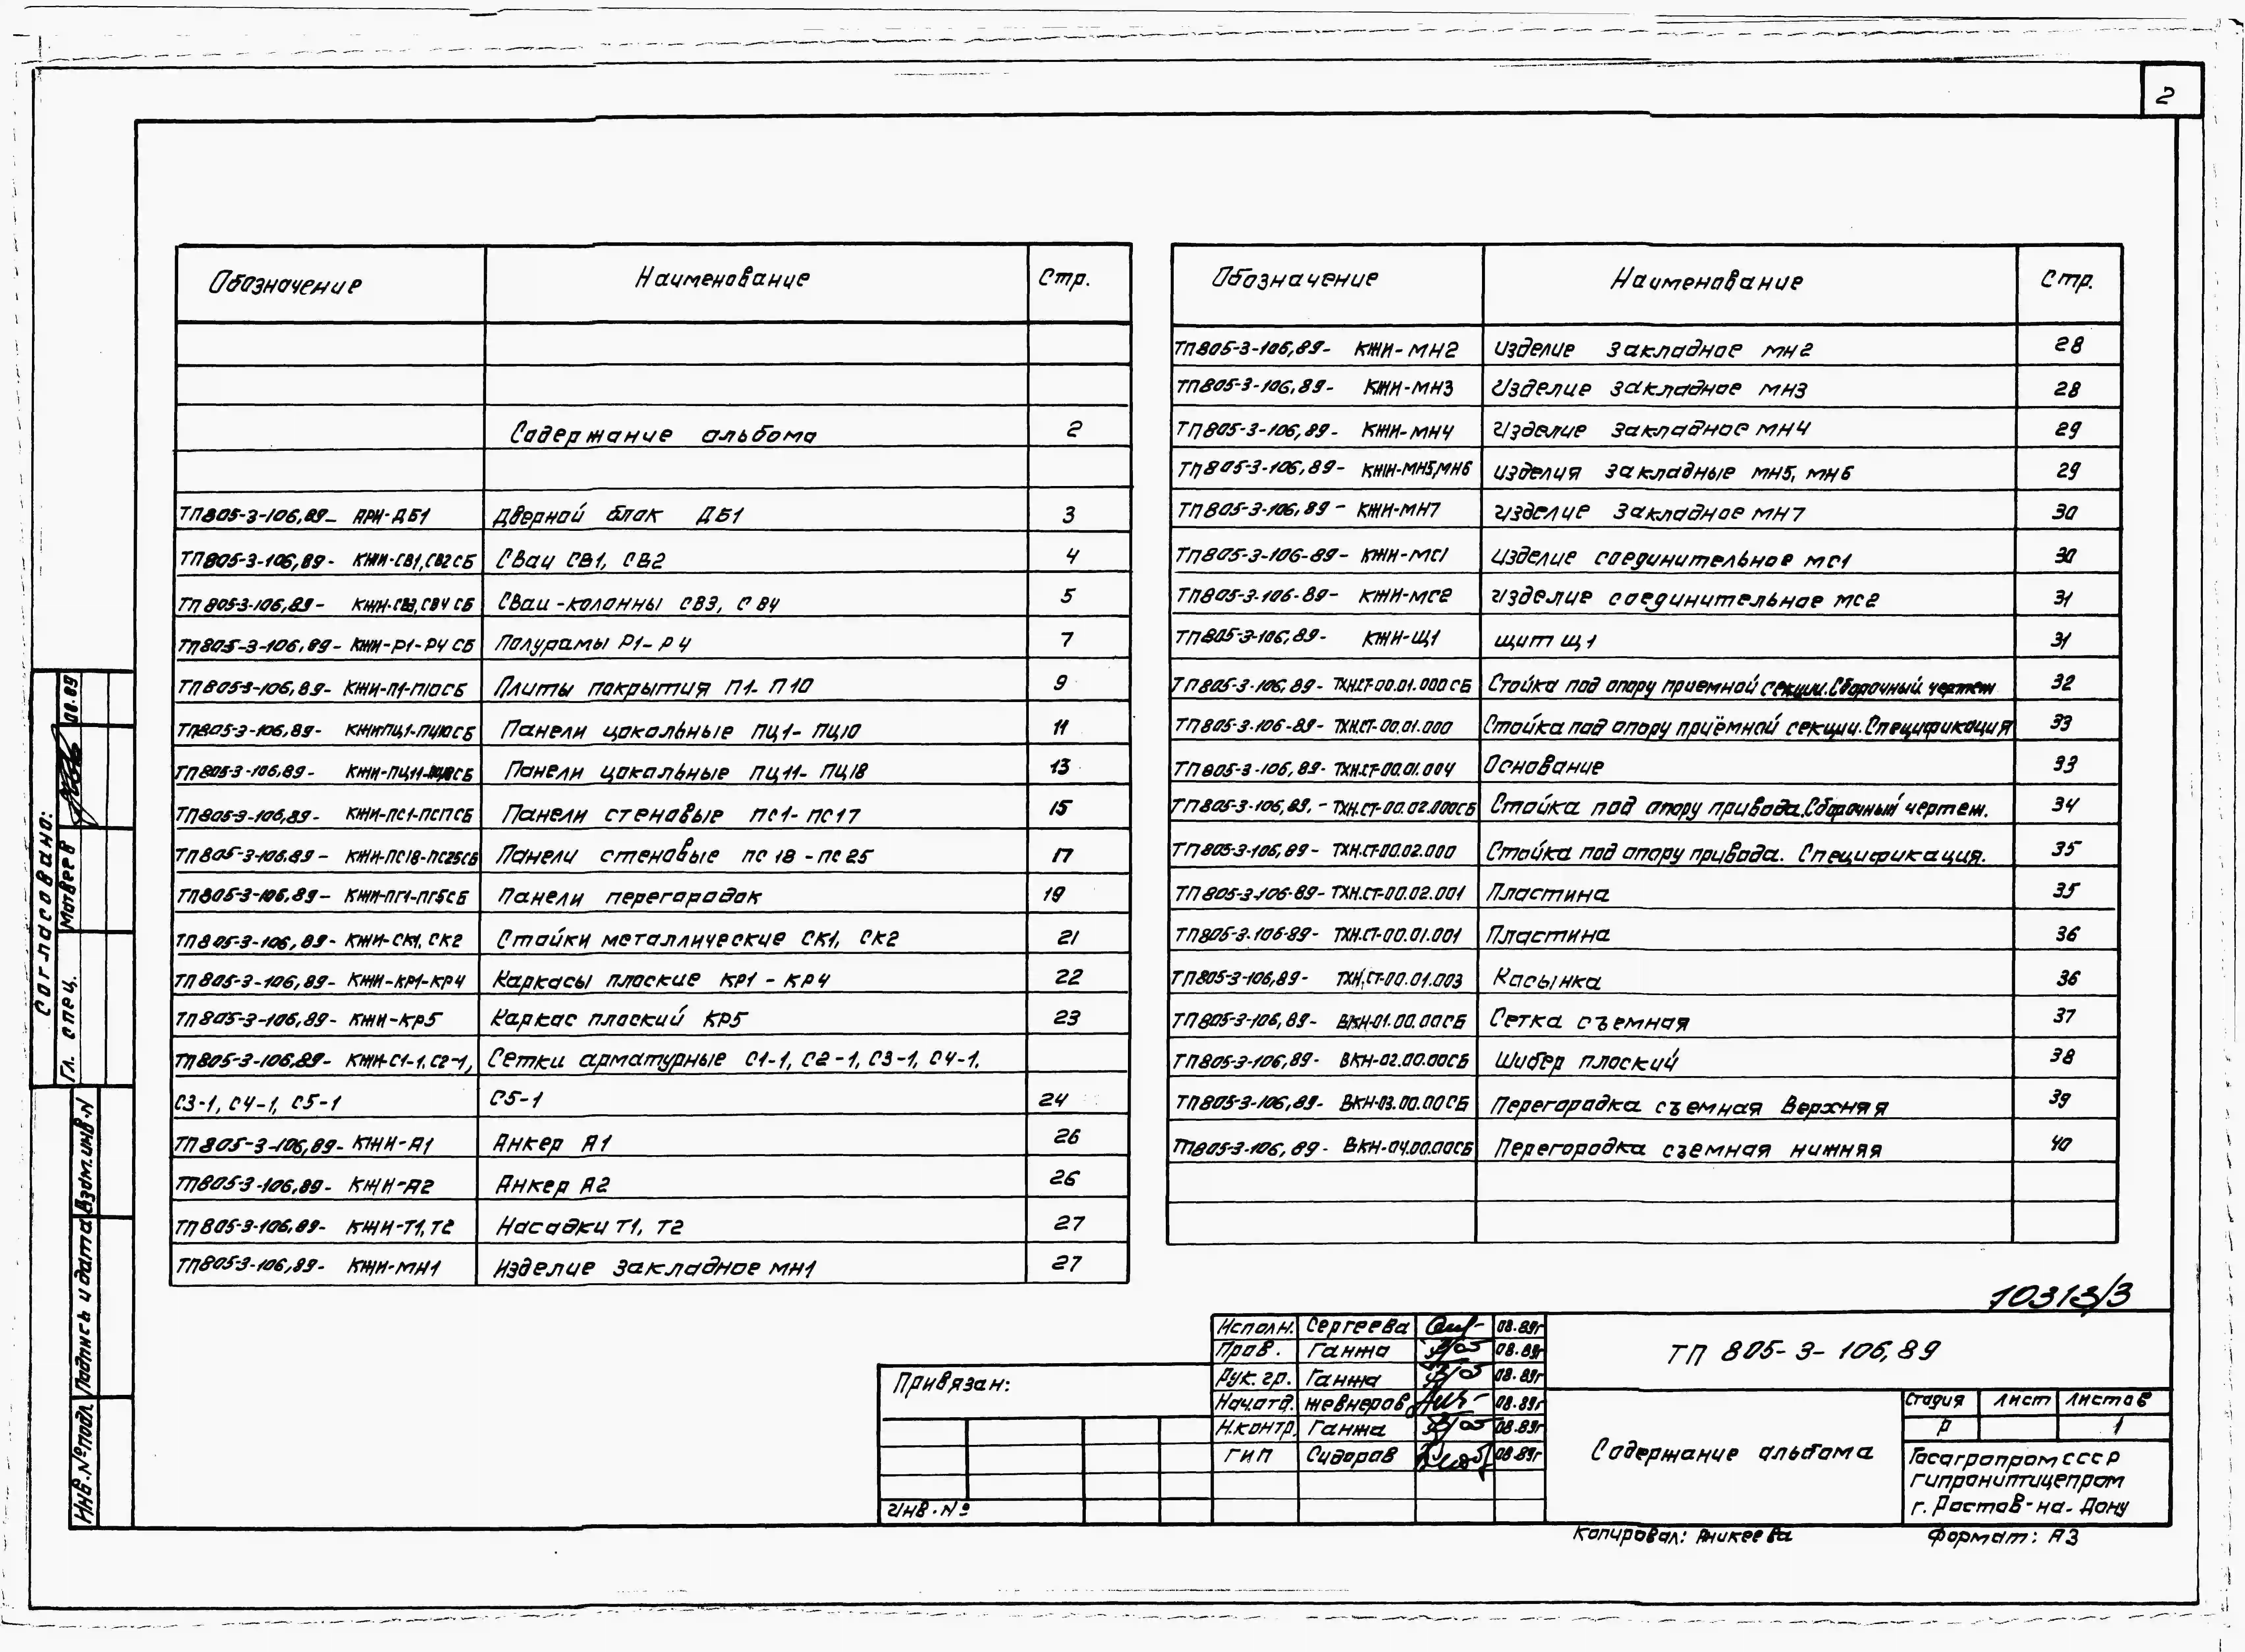 2
Обозначение Наименование Стр.
Содержание альбома 2
ТП805-3-106,89- АРИ-ДБ1 Дверной блок ДБ1 3
ТП805-3-106,89- КЖИ-СВ1,СВ2СБ Сваи СВ1, СВ2 4
ТП805-3-106,89- КЖИ-СВ3,СВ4СБ Сваи-колонны СВ3, СВ4 5
ТП805-3-106,89- КЖИ-Р1-Р4 СБ Полурамы Р1-Р4 7
ТП805-3-106,89- КЖИ-П1-П10СБ Плиты покрытия П1-П10 9
ТП805-3-106,89- КЖИ-ПЦ1-ПЦ10СБ Панели цокольные ПЦ1-ПЦ10 11
ТП805-3-106,89- КЖИ-ПЦ11-ПЦ18СБ Панели цокольные ПЦ11-ПЦ18 13
ТП805-3-106,89- КЖИ-ПС1-ПС17СБ Панели стеновые ПС1-ПС17 15
ТП805-3-106,89- КЖИ-ПС18-ПС25СБ Панели стеновые ПС18-ПС25 17
ТП805-3-106,89- КЖИ-ПГ1-ПГ5СБ Панели перегородок 19
ТП805-3-106,89- КЖИ-СК1, СК2 Стойки металлические СК1, СК2 21
ТП805-3-106,89- КЖИ-КР1-КР4 Каркасы плоские КР1-КР4 22
ТП805-3-106,89- КЖИ-КР5 Каркас плоский КР5 23
ТП805-3-106,89- КЖИ-С1-1, С2-1, Сетки арматурные С1-1, С2-1, С3-1, С4-1,
С3-1, С4-1, С5-1 С5-1 24
ТП805-3-106,89- КЖИ-А1 Анкер А1 26
ТП805-3-106,89- КЖИ-А2 Анкер А2 26
ТП805-3-106,89- КЖИ-Т1, Т2 Насадки Т1, Т2 27
ТП805-3-106,89- КЖИ-МН1 Изделие закладное МН1 27
Обозначение Наименование Стр.
ТП805-3-106,89- КЖИ-МН2 Изделие закладное МН2 28
ТП805-3-106,89- КЖИ-МН3 Изделие закладное МН3 28
ТП805-3-106,89- КЖИ-МН4 Изделие закладное МН4 29
ТП805-3-106,89- КЖИ-МН5,МН6 Изделия закладные МН5, МН6 29
ТП805-3-106,89- КЖИ-МН7 Изделие закладное МН7 30
ТП805-3-106-89- КЖИ-МС1 Изделие соединительное МС1 30
ТП805-3-106-89- КЖИ-МС2 Изделие соединительное МС2 31
ТП805-3-106,89- КЖИ-Щ1 Щит Щ1 31
ТП805-3-106,89- ТХН.СТ-00.01.000СБ Стойка под опору приемной секции. Сборочный чертеж 32
ТП805-3-106-89- ТХН.СТ-00.01.000 Стойка под опору приёмной секции. Спецификация 33
ТП805-3-106,89- ТХН.СТ-00.01.004 Основание 33
ТП805-3-106,89.- ТХН.СТ-00.02.000СБ Стойка под опору привода. Сборочный чертеж. 34
ТП805-3-106,89- ТХН.СТ-00.02.000 Стойка под опору привода. Спецификация. 35
ТП805-3-106-89- ТХН.СТ-00.02.001 Пластина 35
ТП805-3-106-89- ТХН.СТ-00.01.001 Пластина 36
ТП805-3-106,89- ТХН.СТ-00.01.003 Косынка 36
ТП805-3-106,89- ВКН-01.00.00СБ Сетка съемная 37
ТП805-3-106,89- ВКН-02.00.00СБ Шибер плоский 38
ТП805-3-106,89- ВКН-03.00.00СБ Перегородка съемная верхняя 39
ТП805-3-106,89- ВКН-04.00.00СБ Перегородка съемная нижняя 40
10313/3
Согласовано:
Гл. спец. Матвеев 08.89
Взам.инв.N
Подпись и дата
Инв.№подл
Привязан:
Инв.№
Исполн. Сергеева 08.89г
Пров. Ганжа 08.89г
Рук.гр. Ганжа 08.89г
Нач.отд. Жевнеров 08.89г
Н.контр. Ганжа 08.89г
ГИП Сидоров 08.89г
ТП 805-3-106,89
Содержание альбома
Стадия Лист Листов
Р 1
Госагропром СССР
Гипрониптицепром
г. Ростов-на-Дону
Копировал: Аникеева Формат: А3